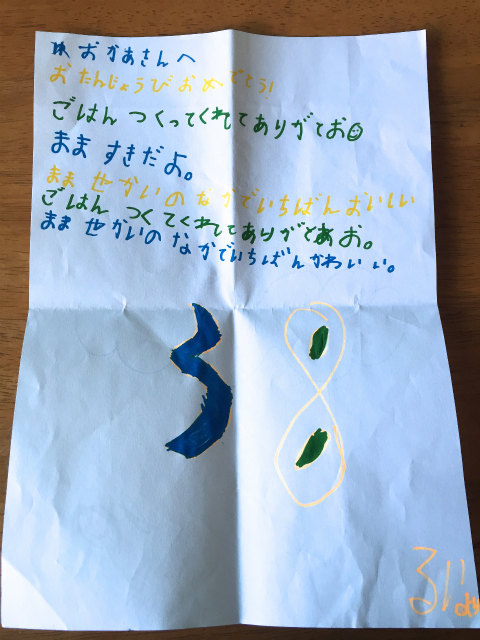 おかあさんへ
おたんじょうびおめでとう!
ごはん つくってくれてありがてお
まま すきだよ。
まま せかいのなかでいちばんおいしい
ごはん つくてくれてありがとお。
まま せかいの なかでいちばんかわいい。
38
るいより